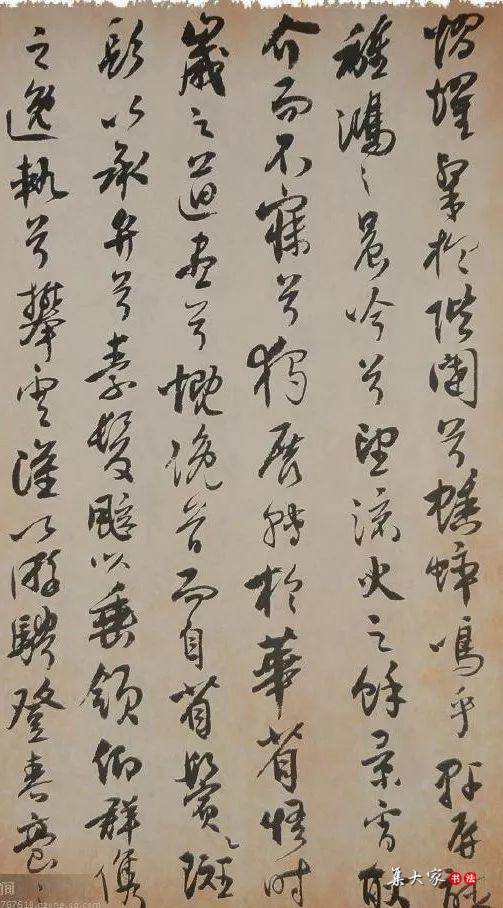 熠燿粲於階闥兮蟋蟀鳴乎軒屏聽
離鴻之晨吟兮望流火之餘景宵耿
介而不寐兮獨展轉於華省悟時
歲之遒盡兮慨俛首而自省鬢斑
髟以承弁兮素髮颯以垂領仰群儁
之逸軌兮攀雲漢以游騁登春臺
集大家 书法
间
767618.qzone.qq.com